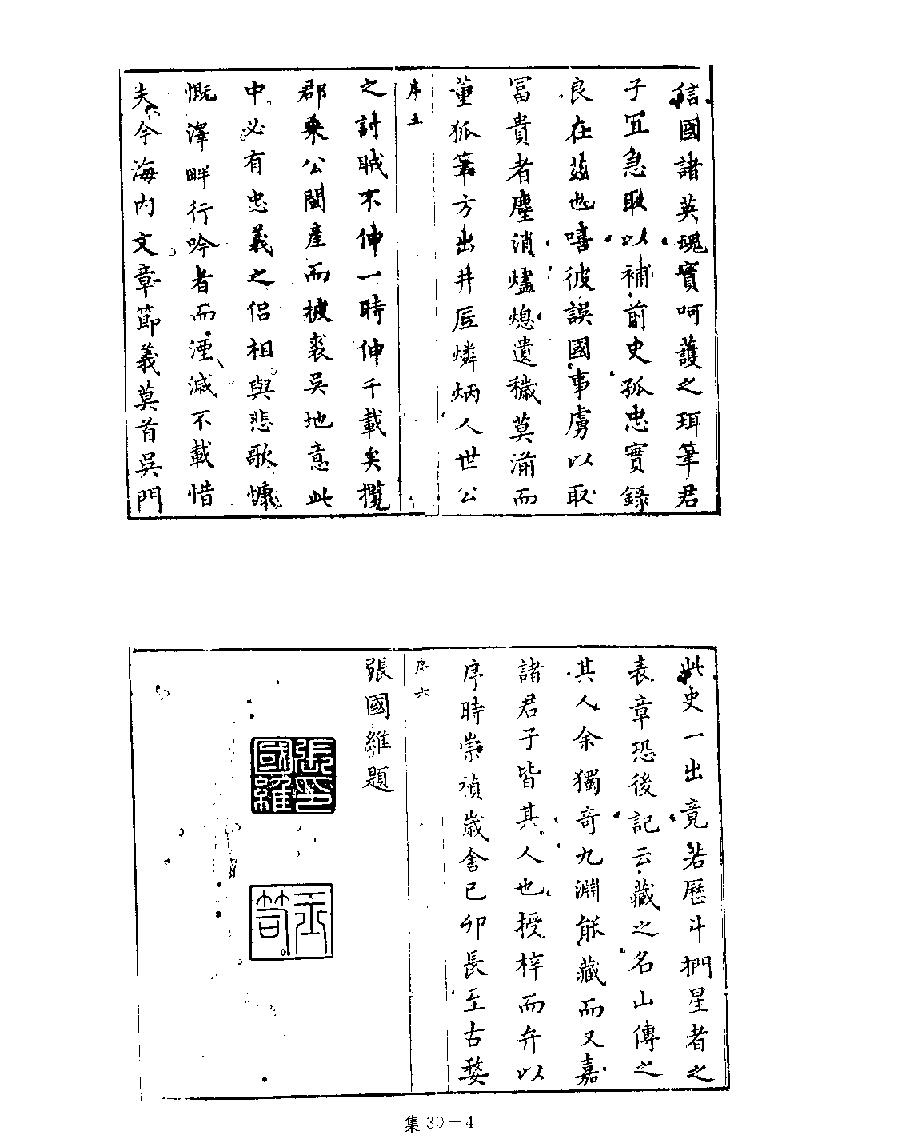 信國諸英瑰實呵護之珥筆君
子宜急取以補前史孤忠實錄
良在茲也嘻彼誤國事虜以取
富貴者塵消燼熄遺穢莫湔而
董狐筆方出井底燐炳人世公
序五
之討賊不伸一時伸千載矣攬
郡乘公閩產而披裘吳地意此
中必有忠義之侶相與悲歌慷
慨澤畔行吟者而湮滅不載惜
夫今海內文章節義莫首吳門
此史一出竟若歷斗捫星者之
表章恐後記云藏之名山傳之
其人余獨奇九淵能藏而又嘉
諸君子皆其人也授梓而弁以
序時崇禎歲舍己卯長至古婺
序六
張國維題
張印國維
玉笥
集30-4